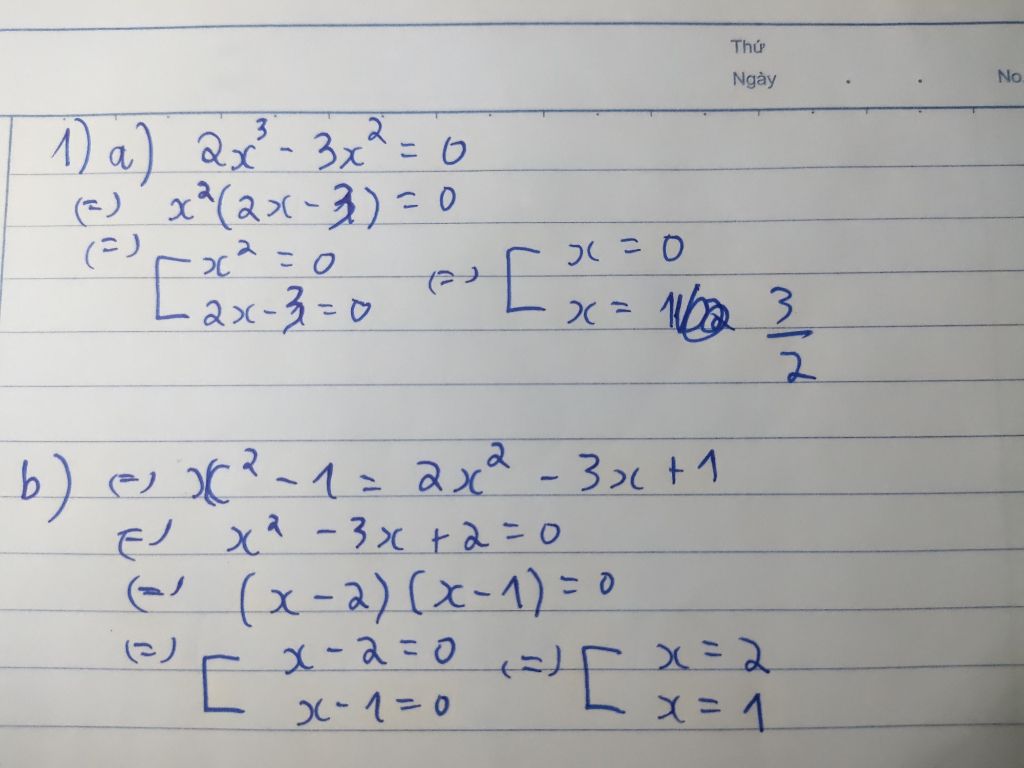 Thứ
Ngày . . No
1) a) 2x³ - 3x² = 0
(=) x²(2x - 3) = 0
(=) [ x² = 0 (=) [ x = 0
2x - 3 = 0 x = 3/2
b) (=) x² - 1 = 2x² - 3x + 1
(=) x² - 3x + 2 = 0
(=) (x - 2) (x - 1) = 0
(=) [ x - 2 = 0 (=) [ x = 2
x - 1 = 0 x = 1